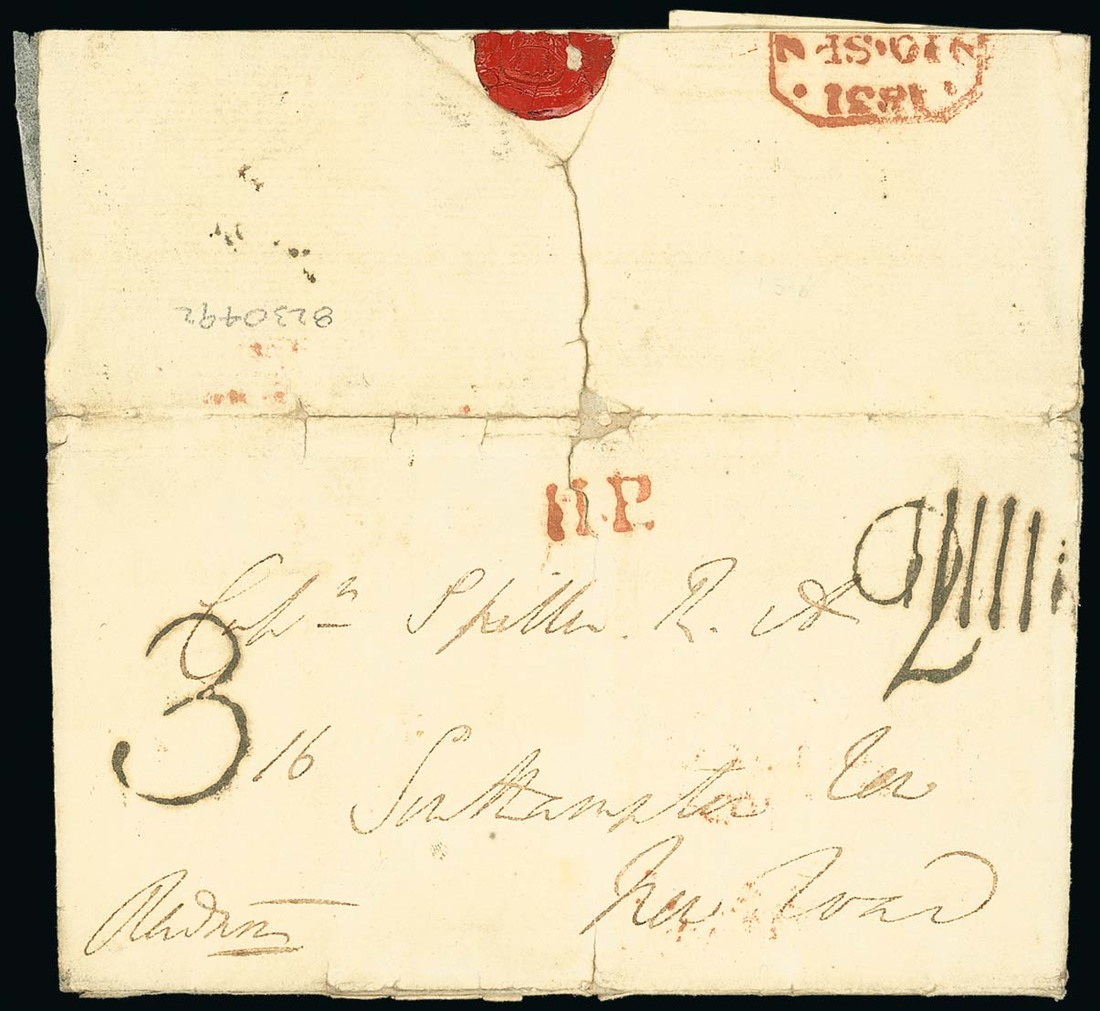 N 10·SE·N
·1831·
8230492
H.P.
Cap.n Spiller R. A
3
16 Southampton Row
New Road